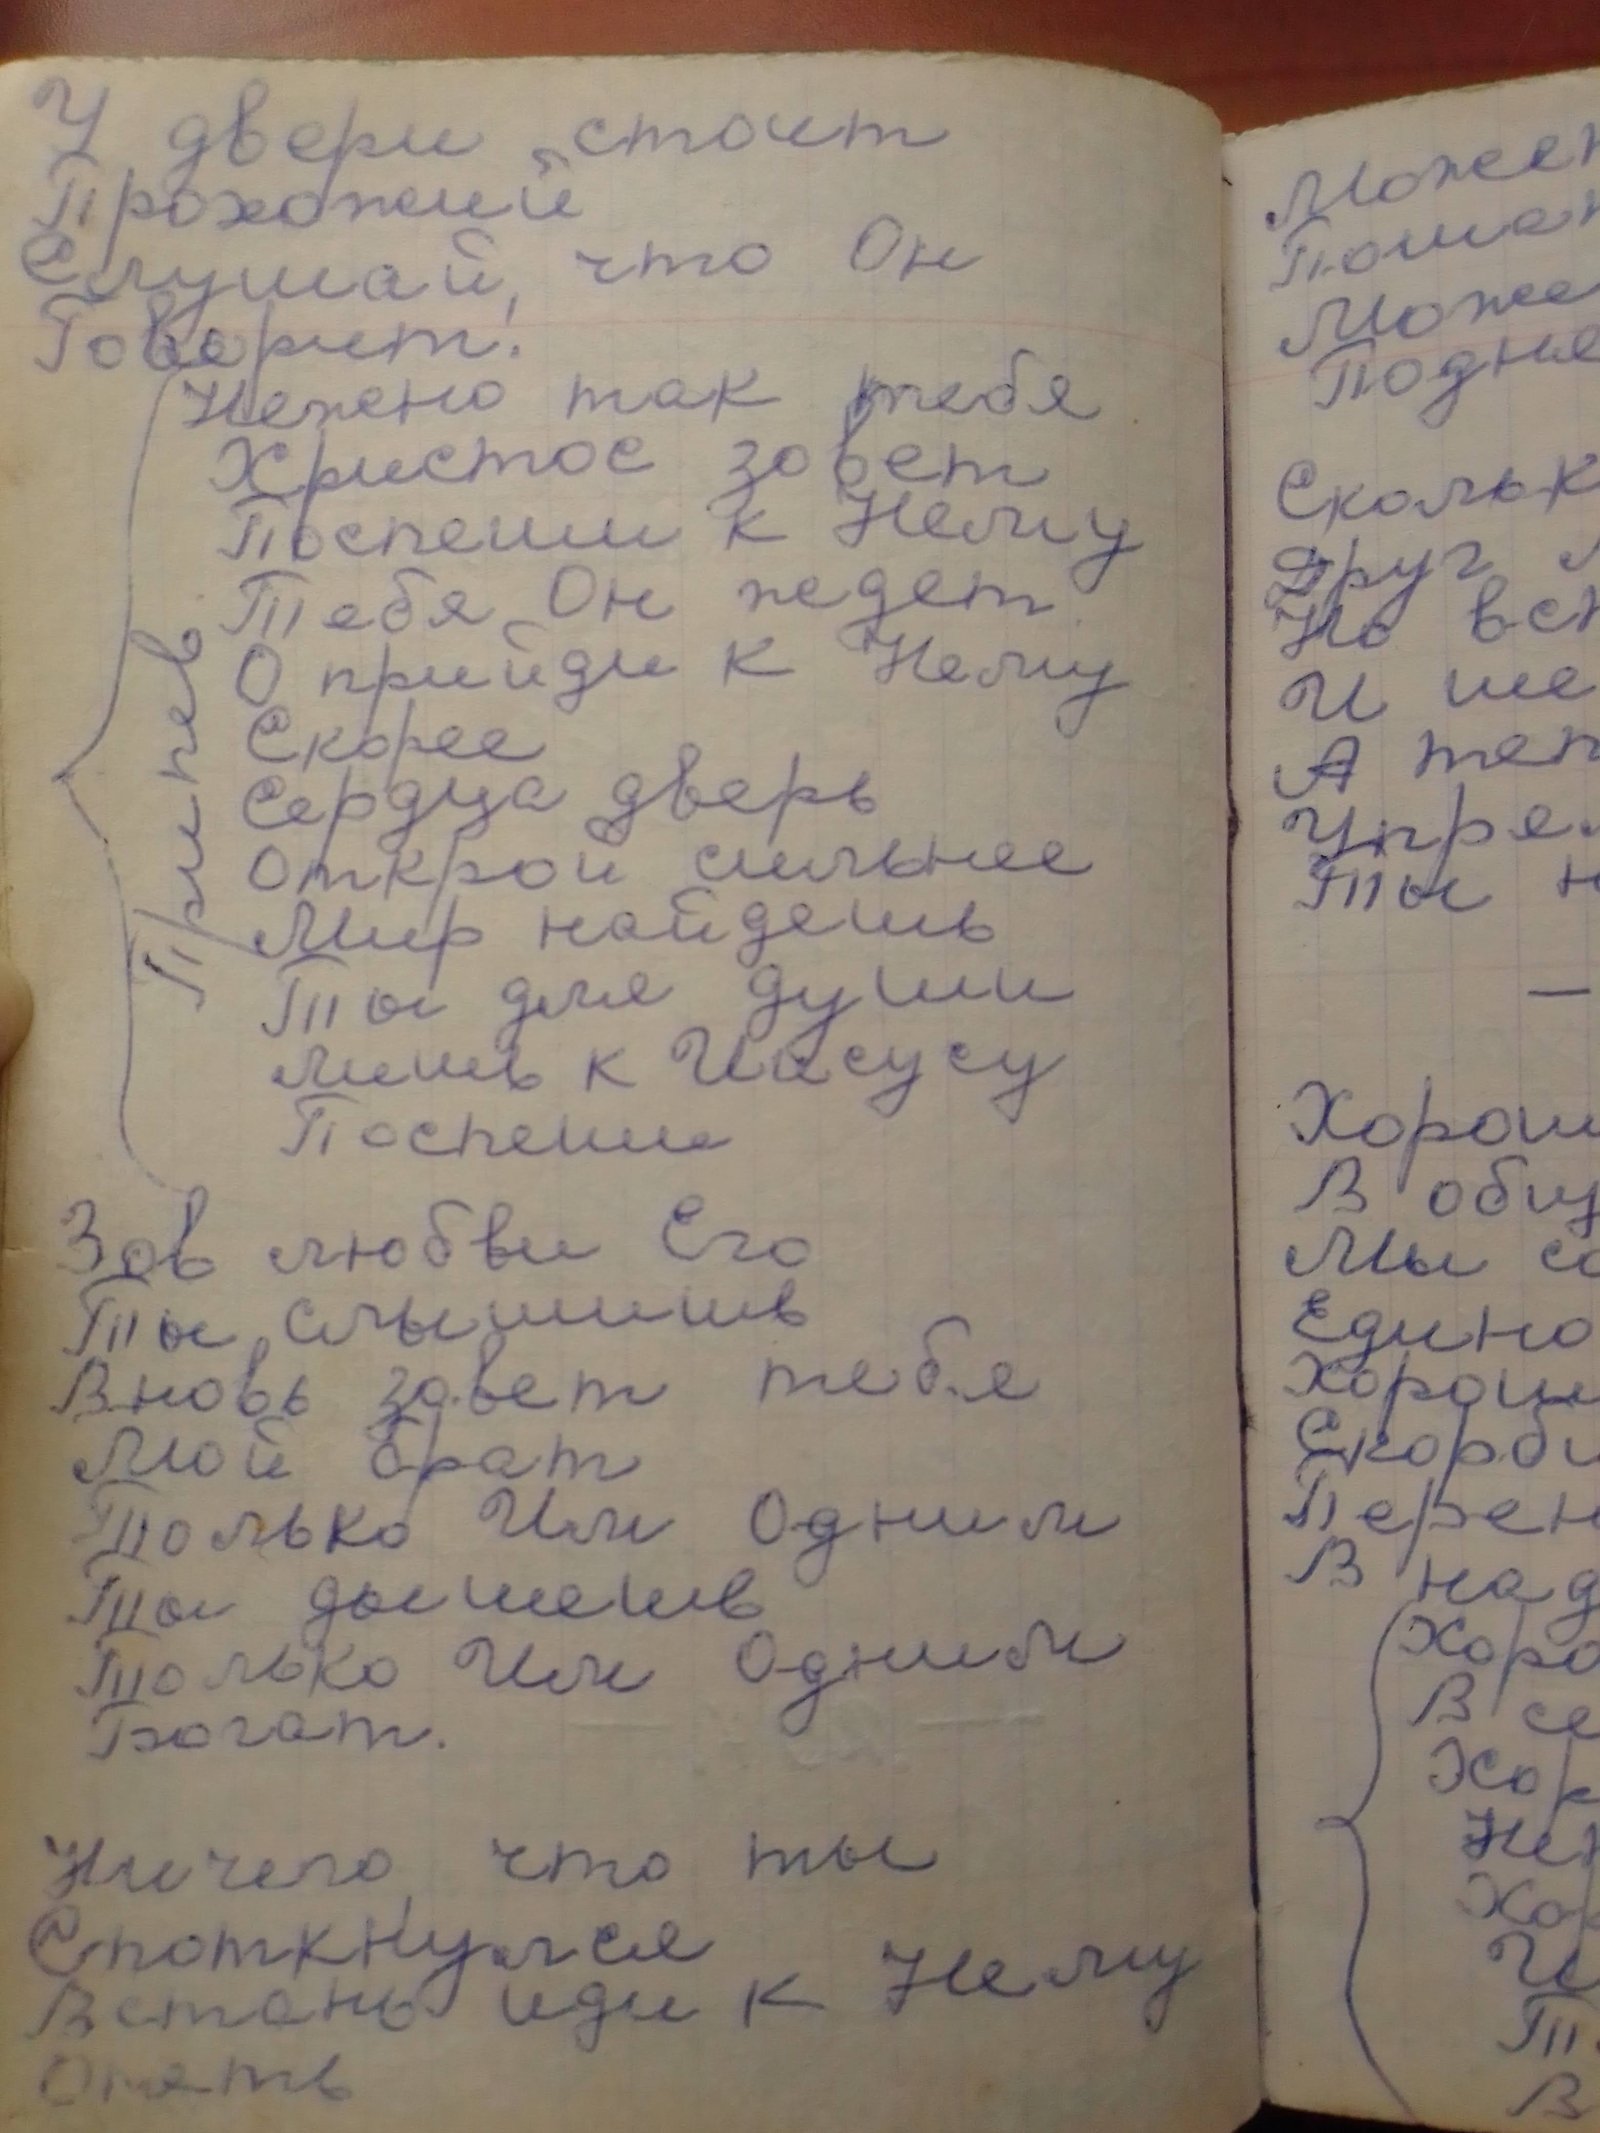 У двери стоит
Прохожий
Слушай, что Он
Говорит!
Нежно так тебя
Христос зовет
Поспеши к Нему
Тебя Он ждет
О прийди к Нему
Скорее
Сердца дверь
Открой сильнее
Мир найдешь
Ты для души
лишь к Иисусу
Поспеши
Припев
Зов любви Его
Ты слышишь
Вновь зовет тебя
Мой брат
Только Им Одним
Ты дышешь
Только Им Одним
Богат.
Ничего, что ты
Споткнулся
Встань иди к Нему
Опять
Сколько
Друг
Но
И
А
Ты
Хорош
В
Мы
Едино
Хорош
В
В
Хоро
В
Хор
Хор
В